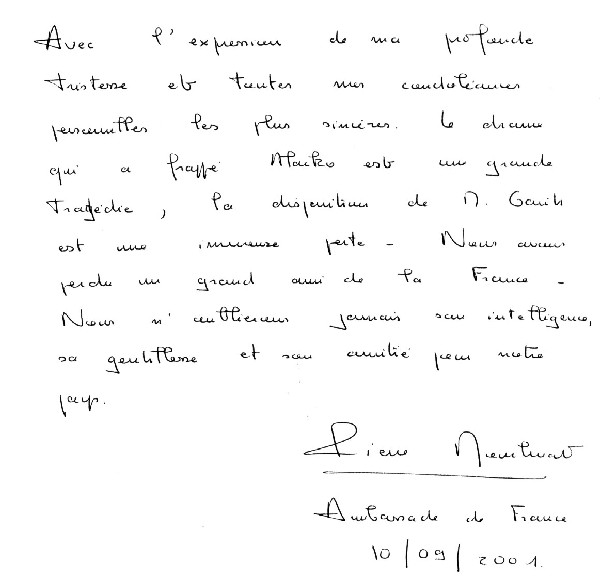 Avec l'expression de ma profonde
tristesse et toutes mes condoléances
personnelles les plus sincères. Le drame
qui a frappé Marko est une grande
tragédie, la disparition de M.
est une immense perte - Nous avons
perdu un grand ami de la France -
Nous n'oublierons jamais son intelligence,
sa gentillesse et son amitié pour notre
pays.
Pierre
Ambassade de France
10/09/2001.